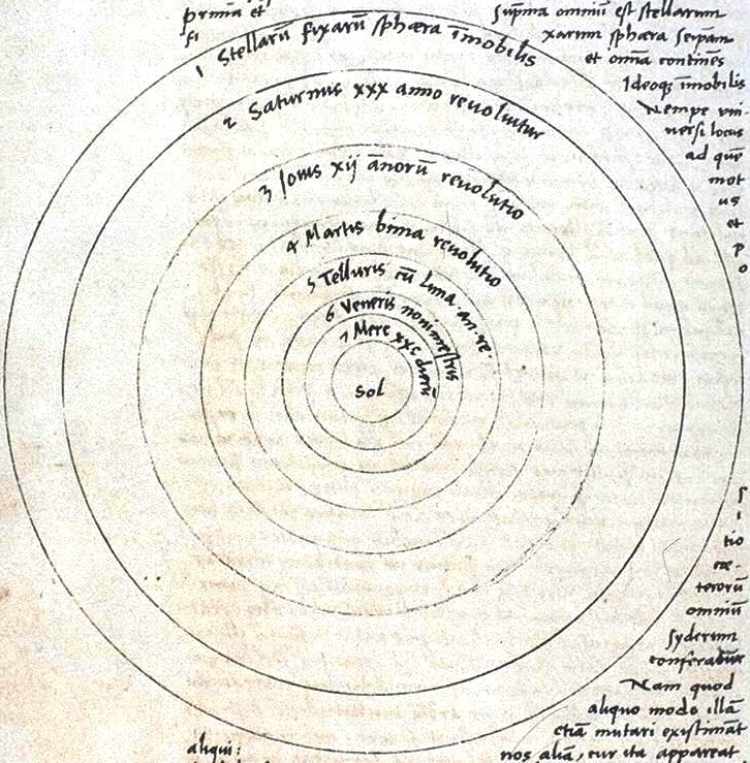 prima et
Supma omniū est stellarum
fi
xarum sphæra seipam
et omīa continēs
Ideoqꝫ īmobilis
Nempe vni
uersi locus
ad quē
mot
us
et
p
o
1 Stellarū fixarū sphæra īmobilis
2 Saturnus xxx anno reuoluitur
3 Iouis xij ānorū reuolutio
4 Martis bima reuolutio
5 Telluris cū Luna. an. re.
6 Veneris nonimestris
7 Merc xxc dierū
Sol
s
i
tio
cæ-
terorū
omniū
syderum
conferatur
Nam quod
aliquo modo illā
etiā mutari existimāt
aliqui:
nos aliā, cur ita appareat